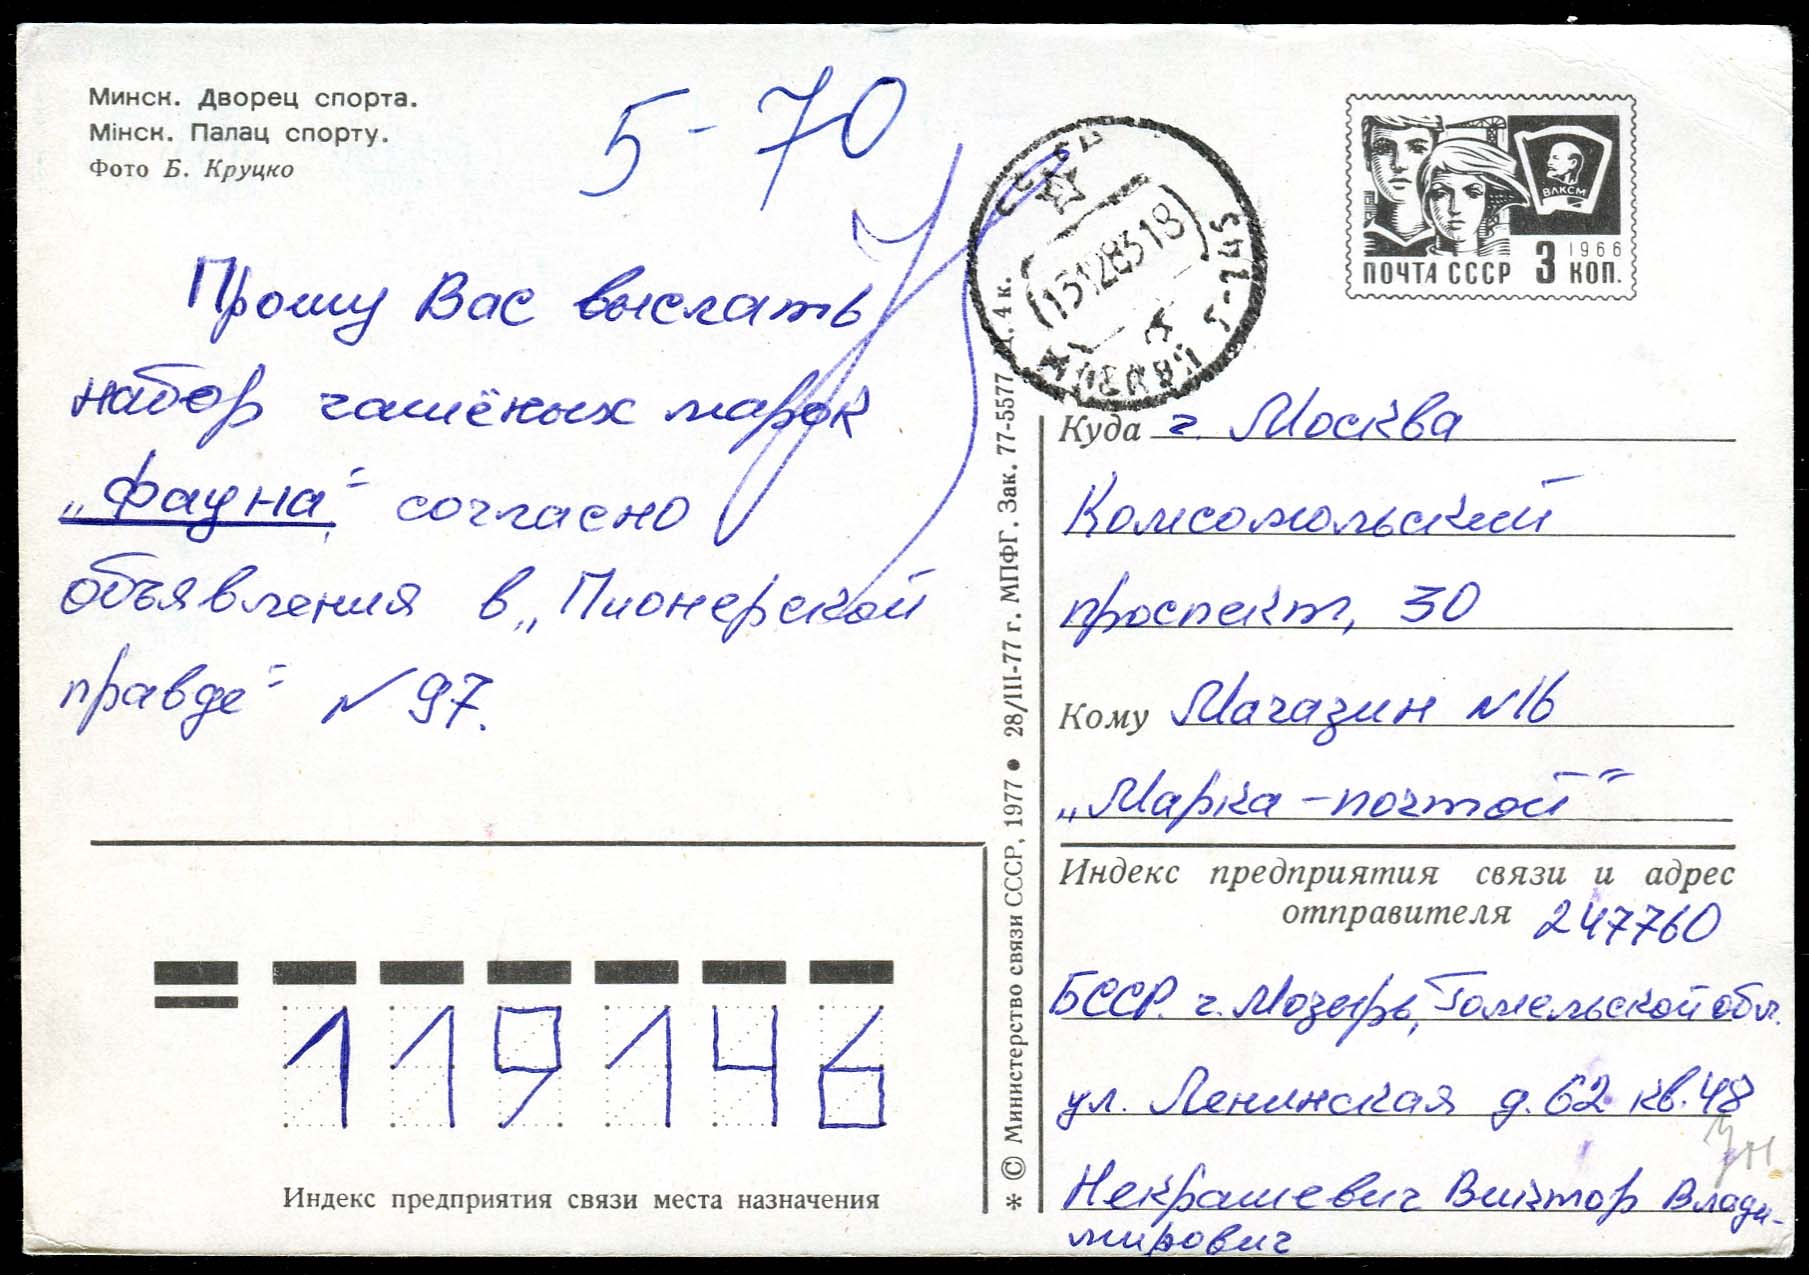 Минск. Дворец спорта.
Мінск. Палац спорту.
Фото Б. Круцко
5-70
Прошу Вас выслать
набор гашёных марок
„Фауна" согласно
объявления в „Пионерской
правде" № 97.
ВЛКСМ
1966
ПОЧТА СССР 3 КОП.
СССР
13128318
МОСКВА
Г-145
Куда г. Москва
Комсомольский
проспект, 30
Кому Магазин №16
„Марка-почтой"
Индекс предприятия связи и адрес
отправителя 247760
БССР. г. Мозырь, Гомельской обл.
ул. Ленинская д. 62 кв. 48
Некрашевич Виктор Влади-
мирович
* © Министерство связи СССР, 1977 ● 28/III-77 г. МПФГ. Зак. 77-5577 Ц. 4 к.
119146
Индекс предприятия связи места назначения